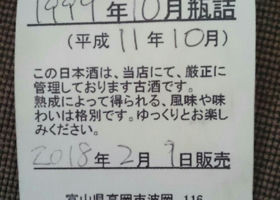 1999年10月瓶詰
(平成11年10月)
この日本酒は、当店にて、厳正に
管理しております古酒です。
熟成によって得られる、風味や味
わいは格別です。ゆっくりとお楽し
みください。
2018年2月9日販売
富山県高岡市波岡 116